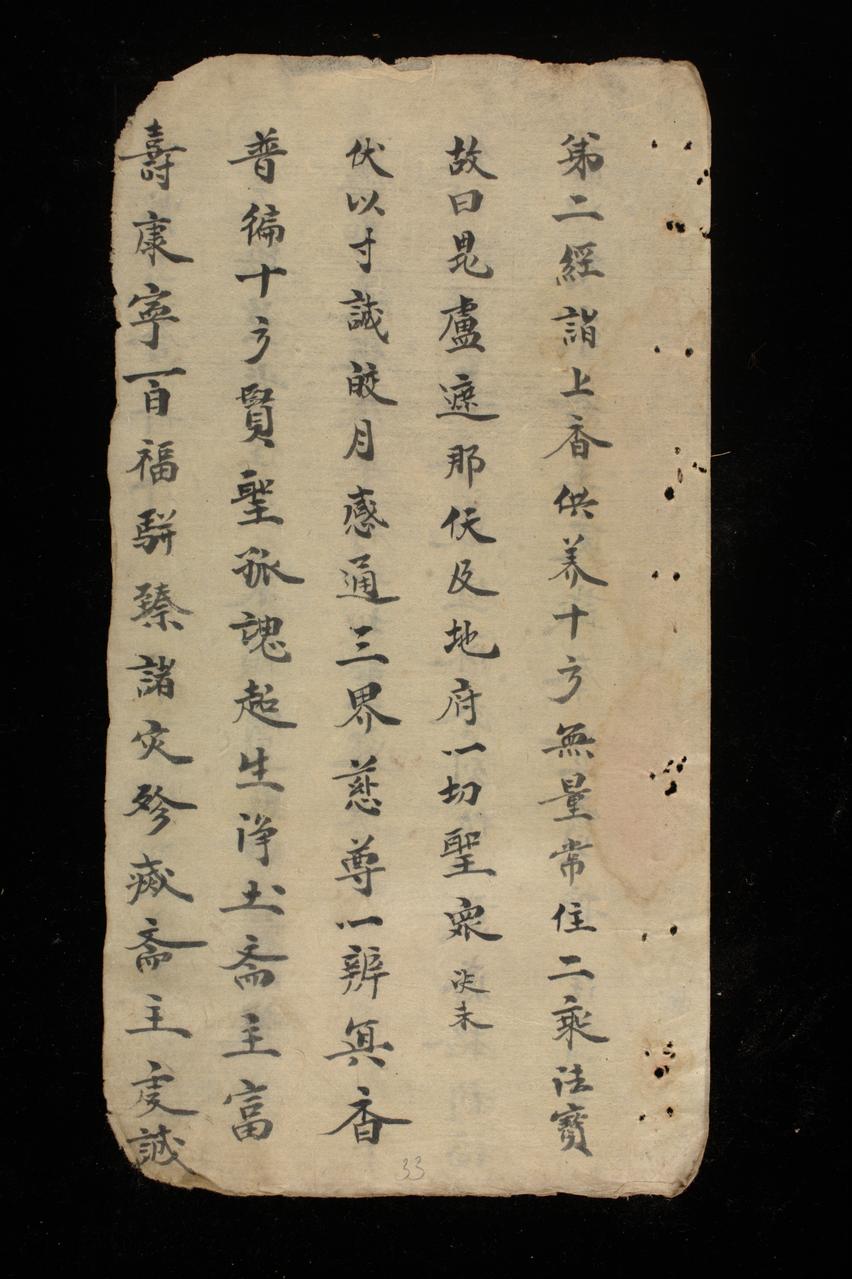 第二經詣上香供养十方無量常住二乘法寳
故曰毘盧遮那佛及地府一切聖衆
伏以寸誠皎月感通三界慈尊一辨眞香
普徧十方賢聖孤魂起生浄土斋主富
壽康寕百福駢臻諸灾殄滅斋主虔誠
33